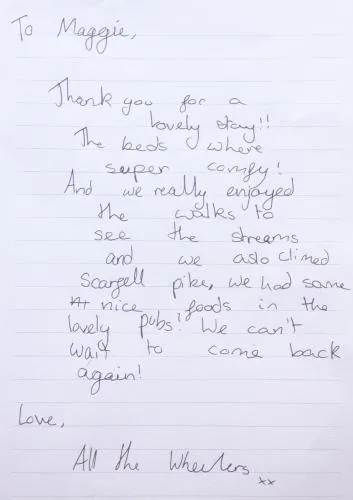 To Maggie,
Thank you for a
lovely stay!!
The beds where
super comfy!
And we really enjoyed
the walks to
see the streams
and we aslo climed
Scargell pike, we had some
nice foods in the
lovely pubs! We can't
wait to come back
again!
Love,
All the Wheelers xx